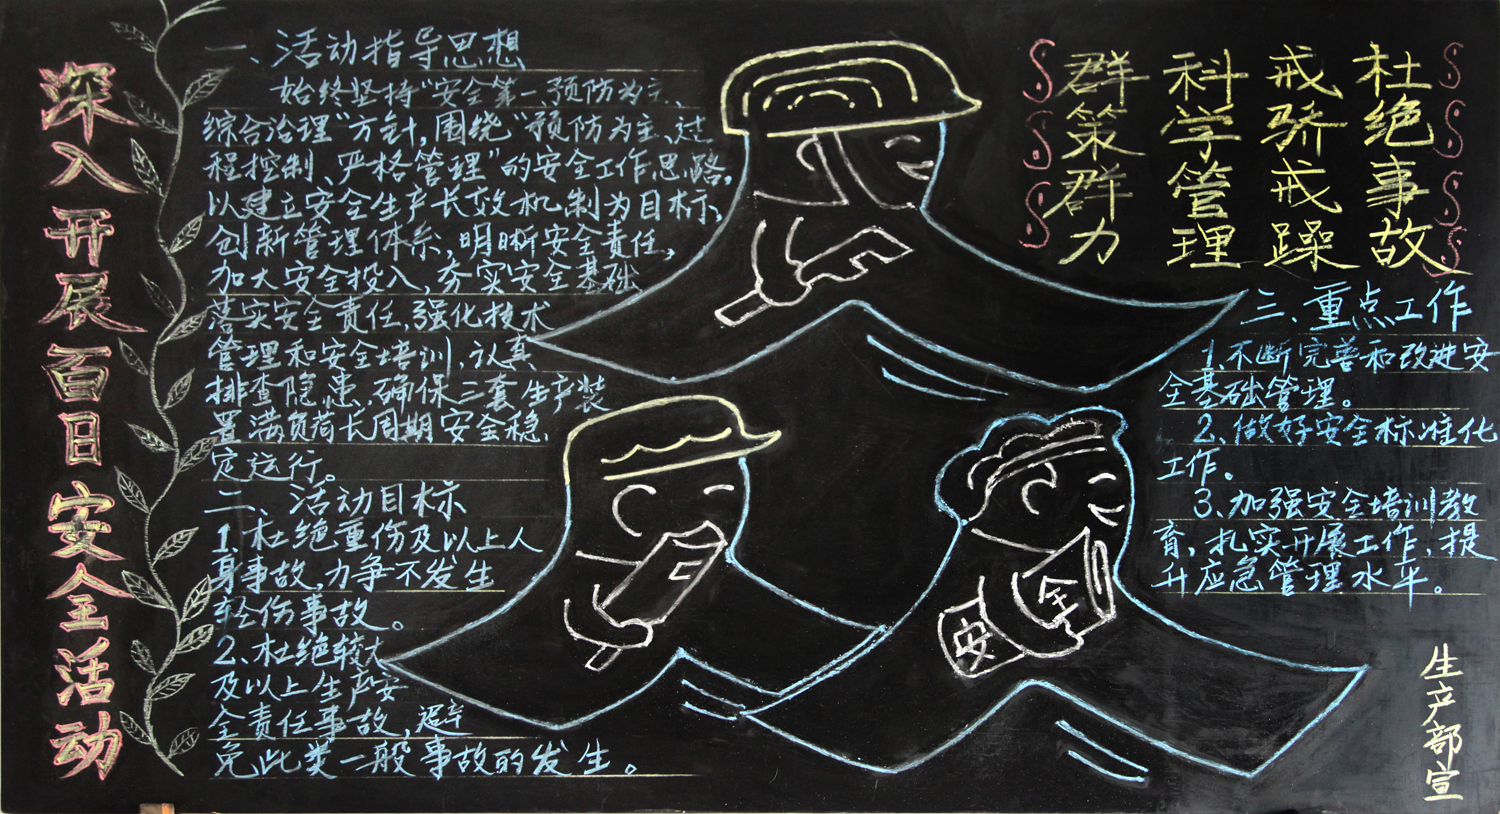 深入开展百日安全活动
一、活动指导思想
始终坚持"安全第一、预防为主、
综合治理"方针，围绕"预防为主、过
程控制、严格管理"的安全工作思路，
以建立安全生产长效机制为目标、
创新管理体系，明晰安全责任，
加大安全投入，夯实安全基础
落实安全责任，强化技术
管理和安全培训，认真
排查隐患，确保三套生产装
置满负荷长周期安全稳、
定运行。
二、活动目标
1、杜绝重伤及以上人
身事故，力争不发生
轻伤事故。
2、杜绝较大
及以上生产安
全责任事故，避
免此类一般事故的发生。
杜绝事故
戒骄戒躁
科学管理
群策群力
三、重点工作
1、不断完善和改进安
全基础管理。
2、做好安全标准化
工作。
3、加强安全培训教
育，扎实开展工作，提
升应急管理水平。
安
全
生产部宣